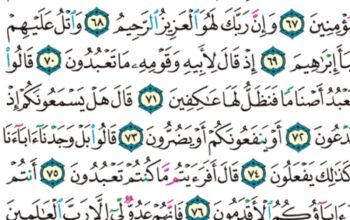 ؤْمِنِينَ ٦٧ وَإِنَّ رَبَّكَ لَهُوَ ٱلْعَزِيزُ ٱلرَّحِيمُ ٦٨ وَٱتْلُ عَلَيْهِمْ
بَأَ إِبْرَٰهِيمَ ٦٩ إِذْ قَالَ لِأَبِيهِ وَقَوْمِهِۦ مَا تَعْبُدُونَ ٧٠ قَالُوا۟
نَعْبُدُ أَصْنَامًا فَنَظَلُّ لَهَا عَٰكِفِينَ ٧١ قَالَ هَلْ يَسْمَعُونَكُمْ إِذْ
تَدْعُونَ ٧٢ أَوْ يَنفَعُونَكُمْ أَوْ يَضُرُّونَ ٧٣ قَالُوا۟ بَلْ وَجَدْنَآ ءَابَآءَنَا
كَذَٰلِكَ يَفْعَلُونَ ٧٤ قَالَ أَفَرَءَيْتُم مَّا كُنتُمْ تَعْبُدُونَ ٧٥ أَنتُمْ
وَءَابَآؤُكُمُ ٱلْأَقْدَمُونَ ٧٦ فَإِنَّهُمْ عَدُوٌّ لِّىٓ إِلَّا رَبَّ ٱلْعَٰلَمِينَ